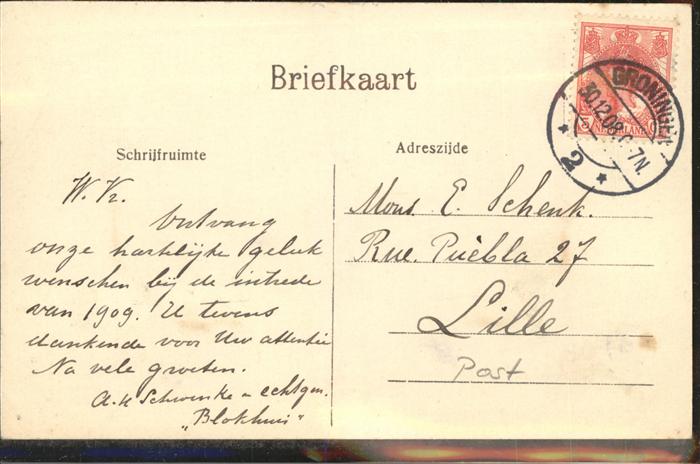 Briefkaart
GRONINGEN
30.12.08. 6-7N.
2
5
NEDERLAND
Schrijfruimte
Adreszijde
W. Vr.
Ontvang
onze hartelijke geluk
wenschen bij de intrede
van 1909. U tevens
dankende voor Uw attentie
Na vele groeten.
Schwenke en echtgen.
"Blokhuis"
Mons. E. Schenk.
Rue. Puebla 27
Lille
Post